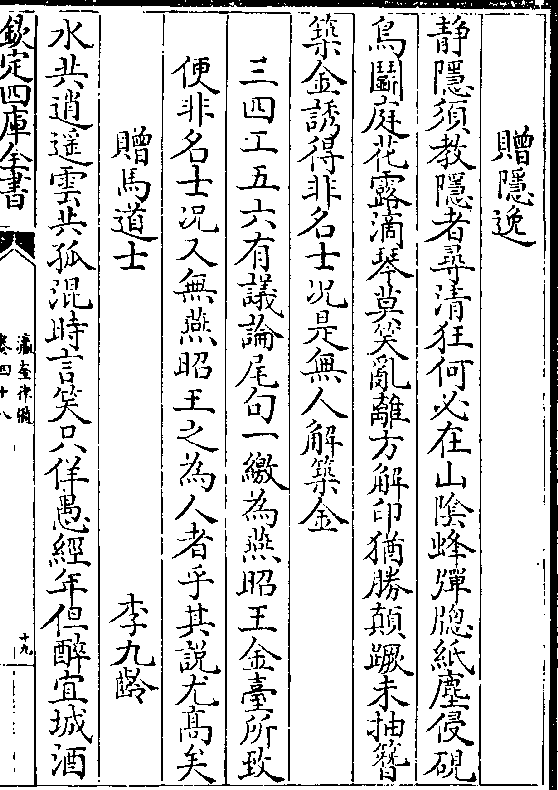 贈隱逸
静隱須教隱者尋清狂何必在山陰蜂彈牕紙塵侵硯
鳥鬭庭花露滴琴莫笑亂離方解印猶勝顛蹶未抽簪
築金誘得非名士况是無人解築金
三四工五六有議論尾句一繳為燕昭王金臺所致
便非名士况又無燕昭王之為人者乎其說尤髙矣
贈馬道士
李九齡
水共逍遥雲共孤混時言笑只佯愚經年但醉宜城酒
欽定四庫全書
瀛奎律髓
卷四十八
十九